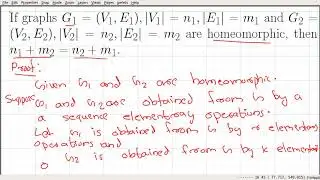 If graphs G₁ = (V₁, E₁), |V₁| = n₁, |E₁| = m₁ and G₂ =
(V₂, E₂), |V₂| = n₂, |E₂| = m₂ are homeomorphic, then
n₁ + m₂ = n₂ + m₁.
Proof:
Given G1 and G2 are homeomorphic.
Suppose G1 and G2 are obtained from G by a
a sequence elementary operations.
Let G1 is obtained from G by r elementary
operations and
G2 is obtained from G by k elemen